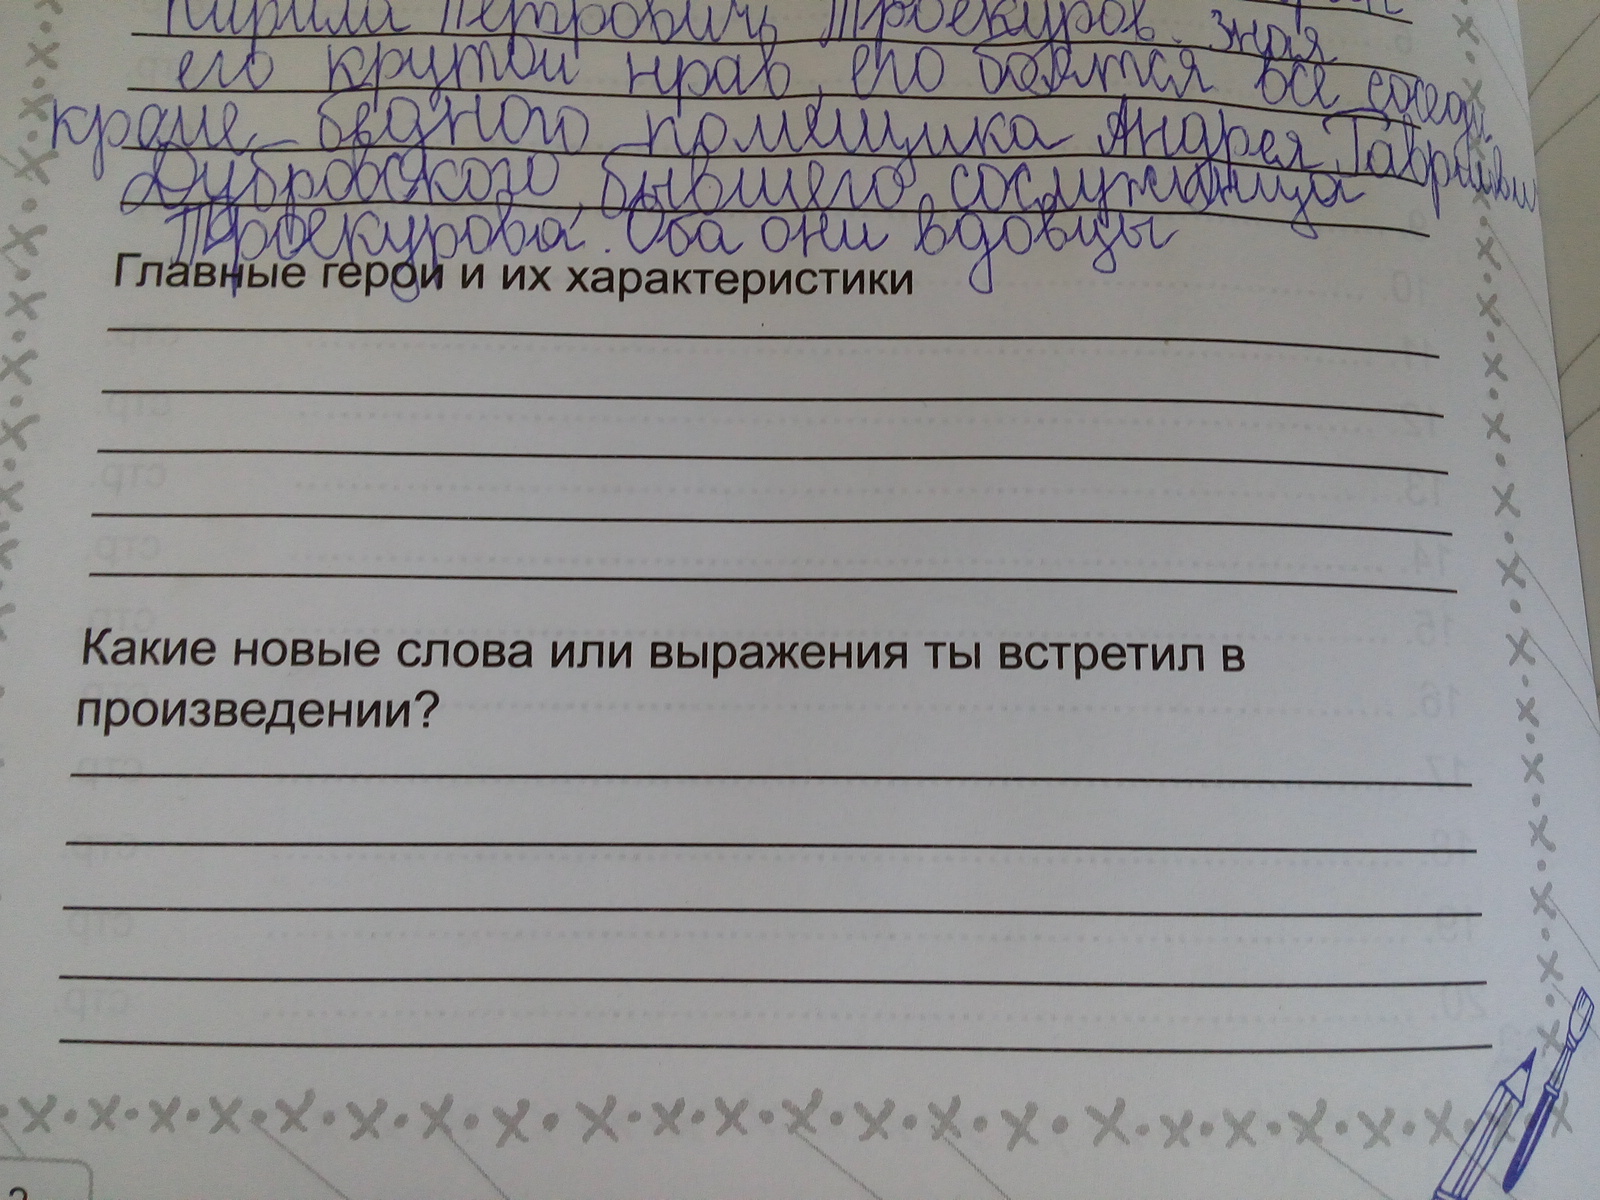 Кирила Петрович Троекуров. Зная
его крутой нрав, его боятся все соседи
кроме бедного помещика Андрея Гаврилови
Дубровского, бывшего сослуживца
Троекурова. Оба они вдовцы
Главные герои и их характеристики
Какие новые слова или выражения ты встретил в
произведении?
10.
11.
стр.
12.
стр.
13.
стр.
14.
стр.
15.
стр.
16.
17
стр.
18.
стр.
19.
стр
20.
стр.